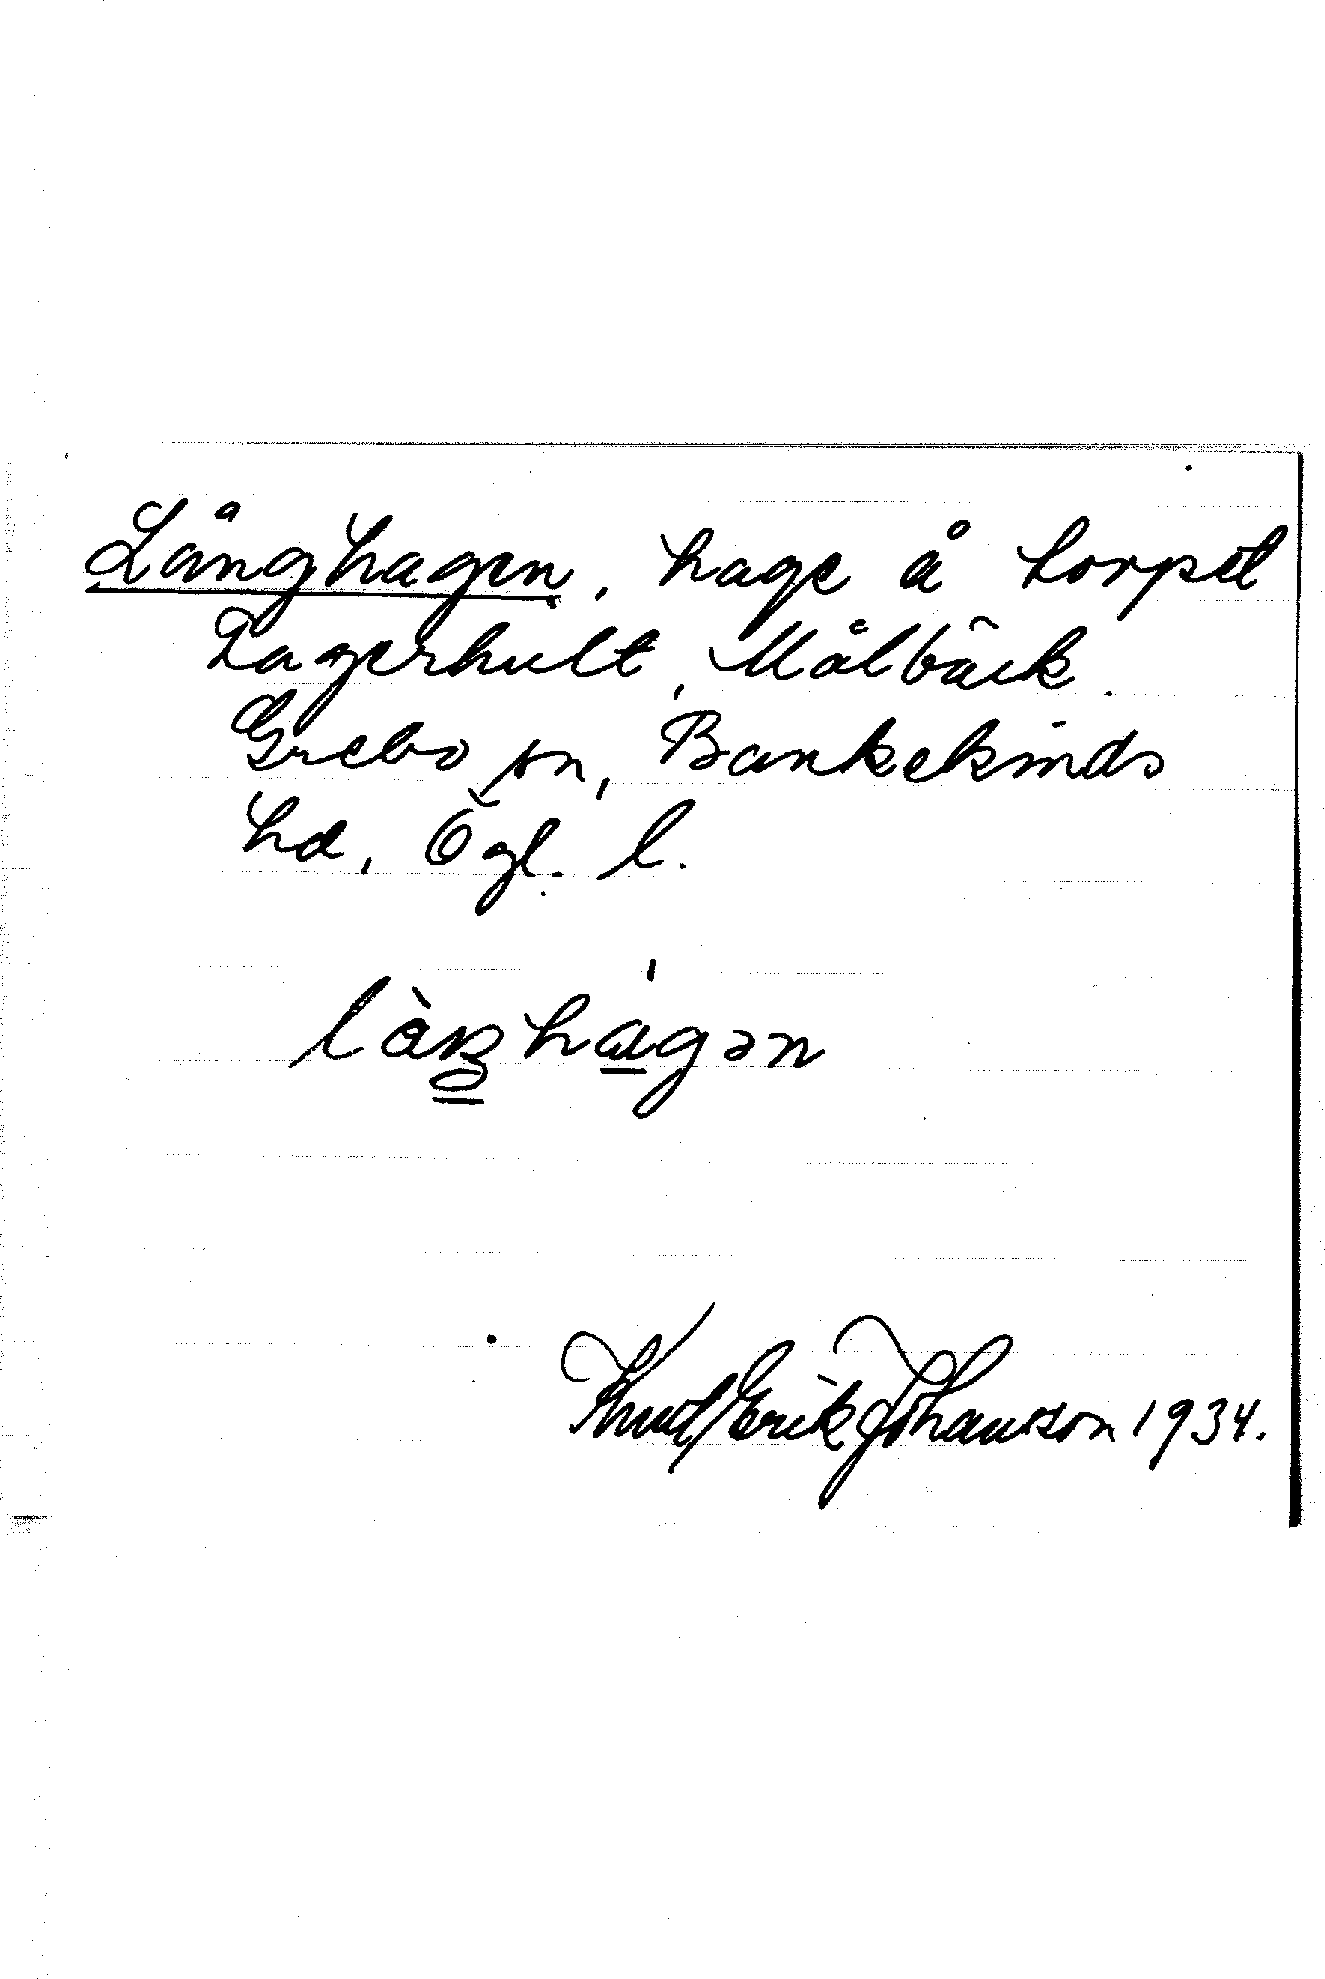 Långhagen, hage å torpet
Lagerhult, Målbäck
Grebo sn, Bankekinds
hd, Ögl. l.
Knut Erik Johansson 1934.